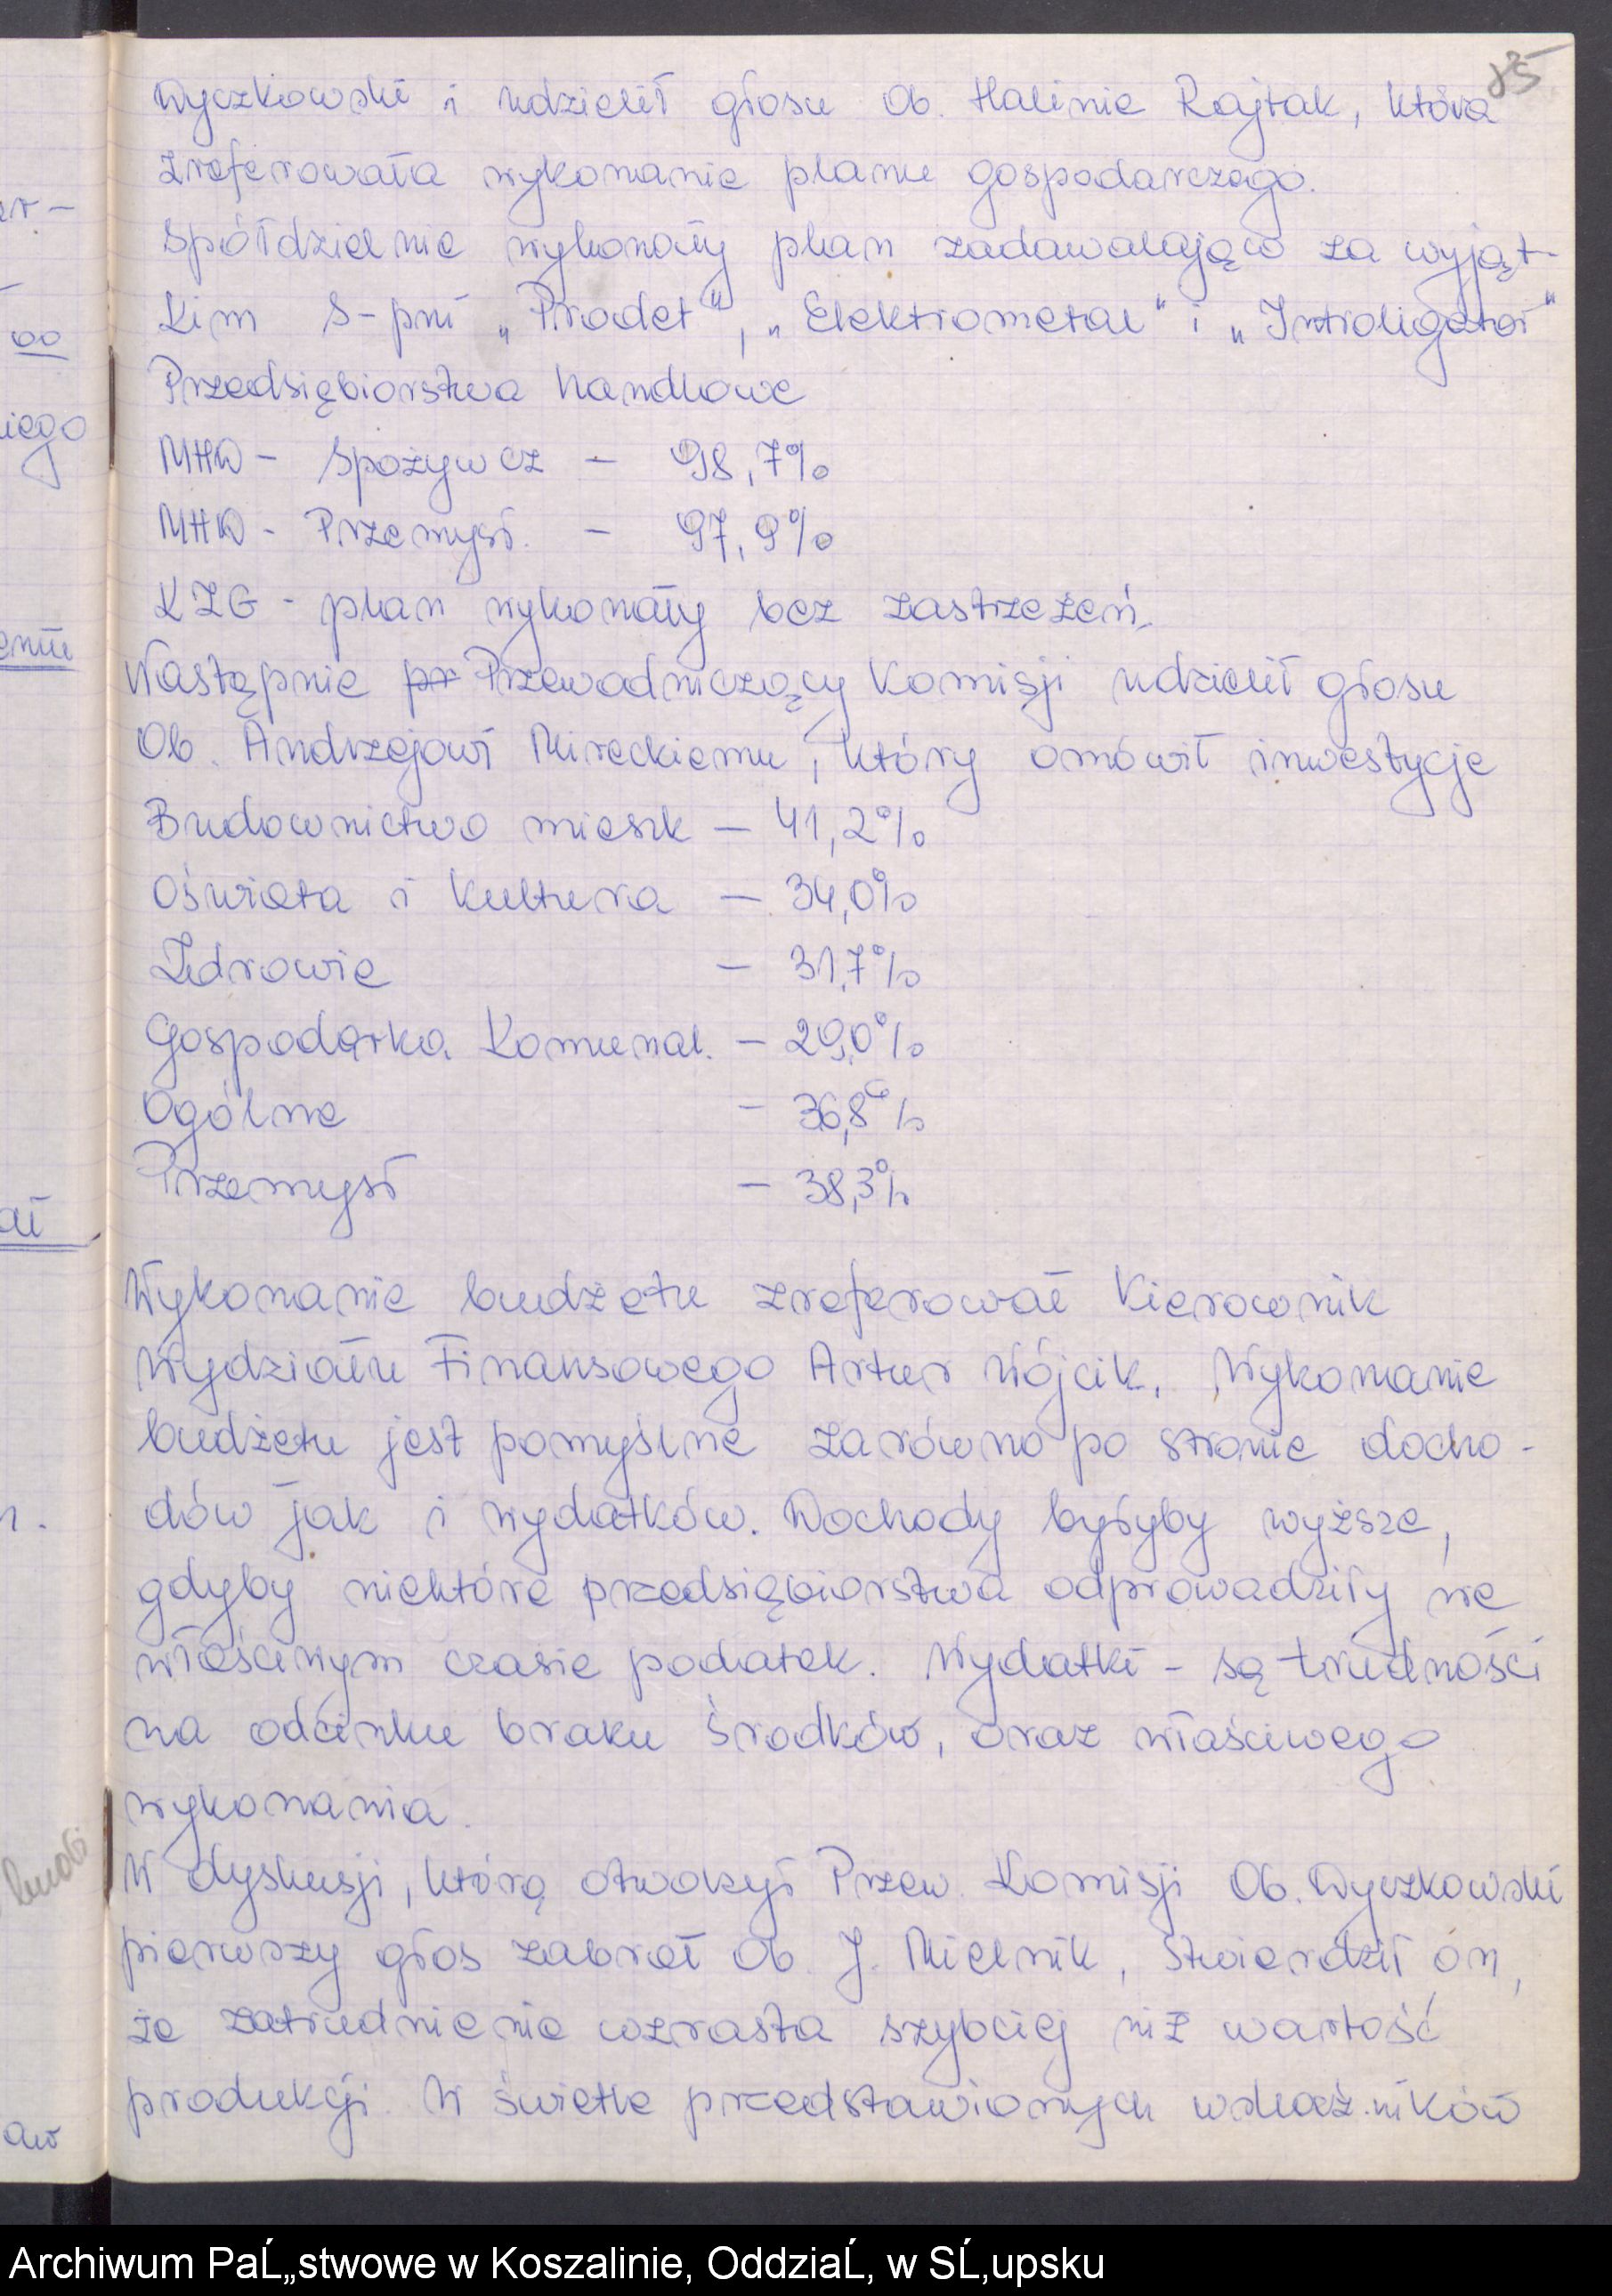 85
Wyczkowski i udzielił głosu Ob. Halinie Rajtak, która
zreferowała wykonanie planu gospodarczego.
Spółdzielnie wykonały plan zadawalająco za wyjąt-
kim S-pni „Prodet", „Elektrometal" i „Introligator"
Przedsiębiorstwa handlowe
MHD - Spożywcz - 98,7%
MHD - Przemysł. - 97,9%
KZG - plan wykonały bez zastrzeżeń.
Następnie pr Przewodniczący Komisji udzielił głosu
Ob. Andrzejowi Mireckiemu, który omówił inwestycje
Budownictwo mieszk - 41,2%
Oświata i Kultura - 34,0%
Zdrowie - 31,7%
Gospodarka Komunal. - 29,0%
Ogólne - 36,8%
Przemysł - 38,3%
Wykonanie budżetu zreferował Kierownik
Wydziału Finansowego Artur Wójcik. Wykonanie
budżetu jest pomyślne zarówno po stronie docho-
dów jak i wydatków. Dochody byłyby wyższe,
gdyby niektóre przedsiębiorstwa odprowadziły we
właściwym czasie podatek. Wydatki - są trudności
na odcinku braku środków, oraz właściwego
wykonania.
W dyskusji, którą otworzył Przew. Komisji Ob. Wyczkowski
pierwszy głos zabrał Ob. J. Mielnik, stwierdził on,
że zatrudnienie wzrasta szybciej niż wartość
produkcji. W świetle przedstawionych wskaźników
Archiwum PaĹ„stwowe w Koszalinie, OddziaĹ‚ w SĹ‚upsku